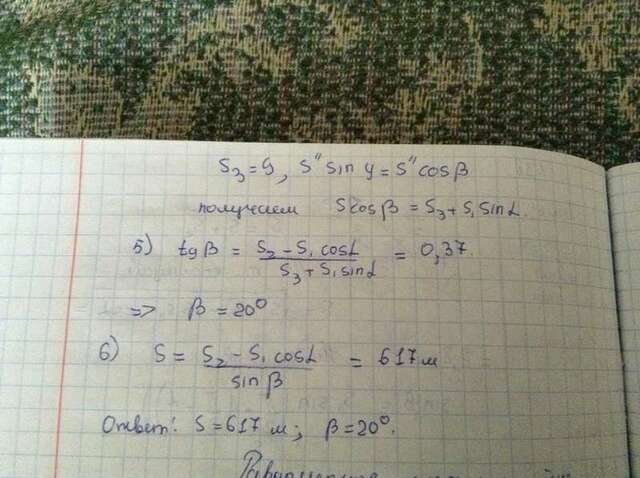 S₃ = y, S" sin y = S" cosβ
получаем S cosβ = S₃ + S₁ sinL
5) tgβ = (S₂ - S₁ cosL) / (S₃ + S₁ sinL) = 0,37
=> β = 20°
6) S = (S₂ - S₁ cosL) / sinβ = 617 м
Ответ: S = 617 м; β = 20°.